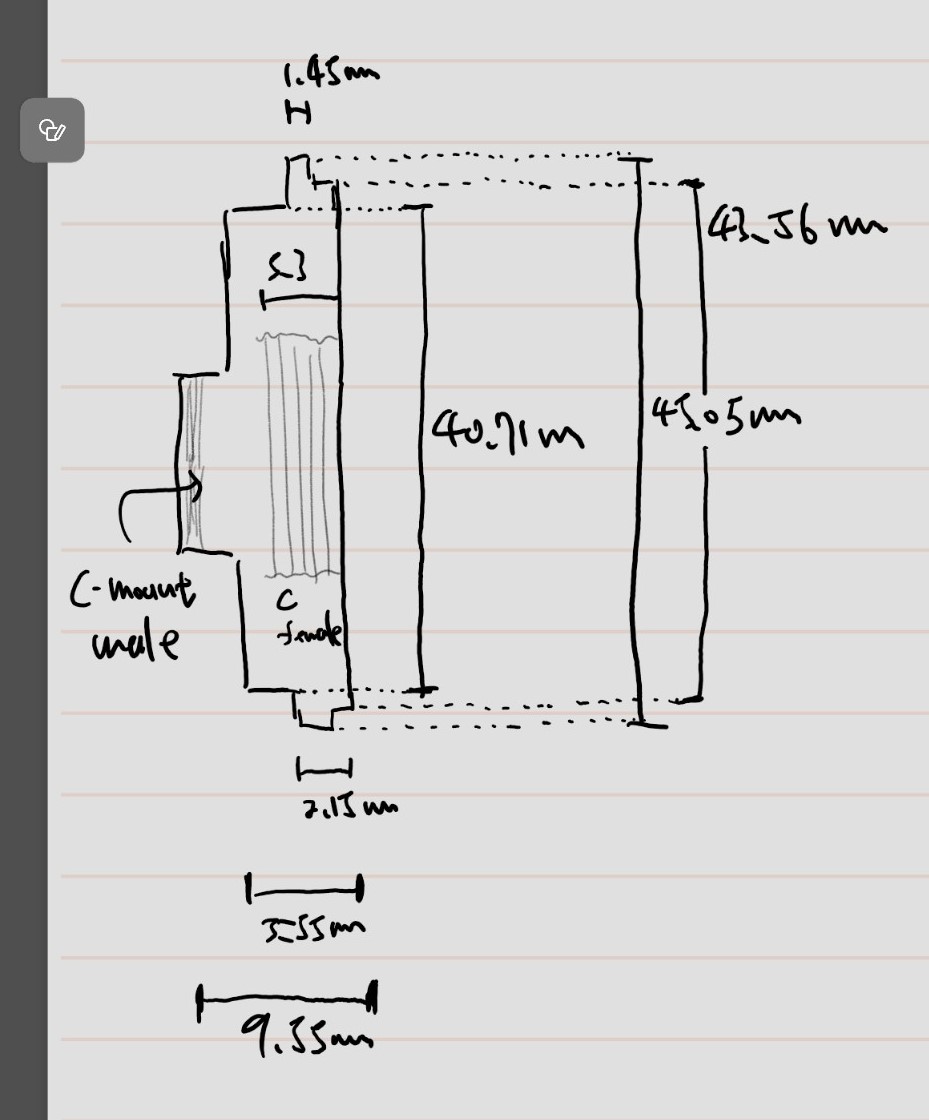 1.45mm
43.56 mm
5.3
45.05mm
40.71m
C-mount
male
C
female
2.15 mm
5.55mm
9.55mm